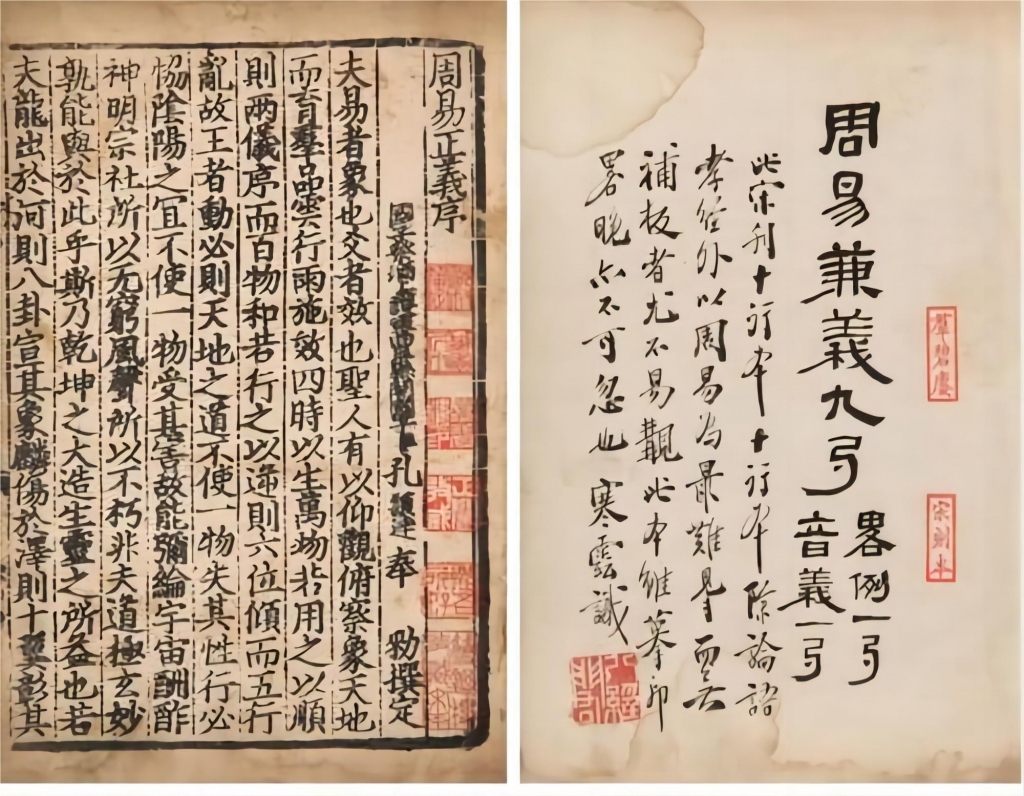 羣碧廔
宋刻本
周易兼義九弓
畧例一弓
音義一弓
此宋刊十行本十行本除論語
孝經外以周易為最難見而無
補板者尤不易覯此本雖摹印
畧晚亦不可忽也 寒雲識
周易正義序
國子祭酒上護軍曲阜縣開國子臣孔穎達奉 勑撰定
夫易者象也爻者效也聖人有以仰觀俯察象天地
而育羣品雲行雨施效四時以生萬物若用之以順
則兩儀序而百物和若行之以逆則六位傾而五行
亂故王者動必則天地之道不使一物失其性行必
恊陰陽之宜不使一物受其害故能彌綸宇宙酬酢
神明宗社所以无窮風聲所以不朽非夫道極玄妙
孰能與於此乎斯乃乾坤之大造生靈之所益也若
夫龍出於河則八卦宣其象麟傷於澤則十翼彰其